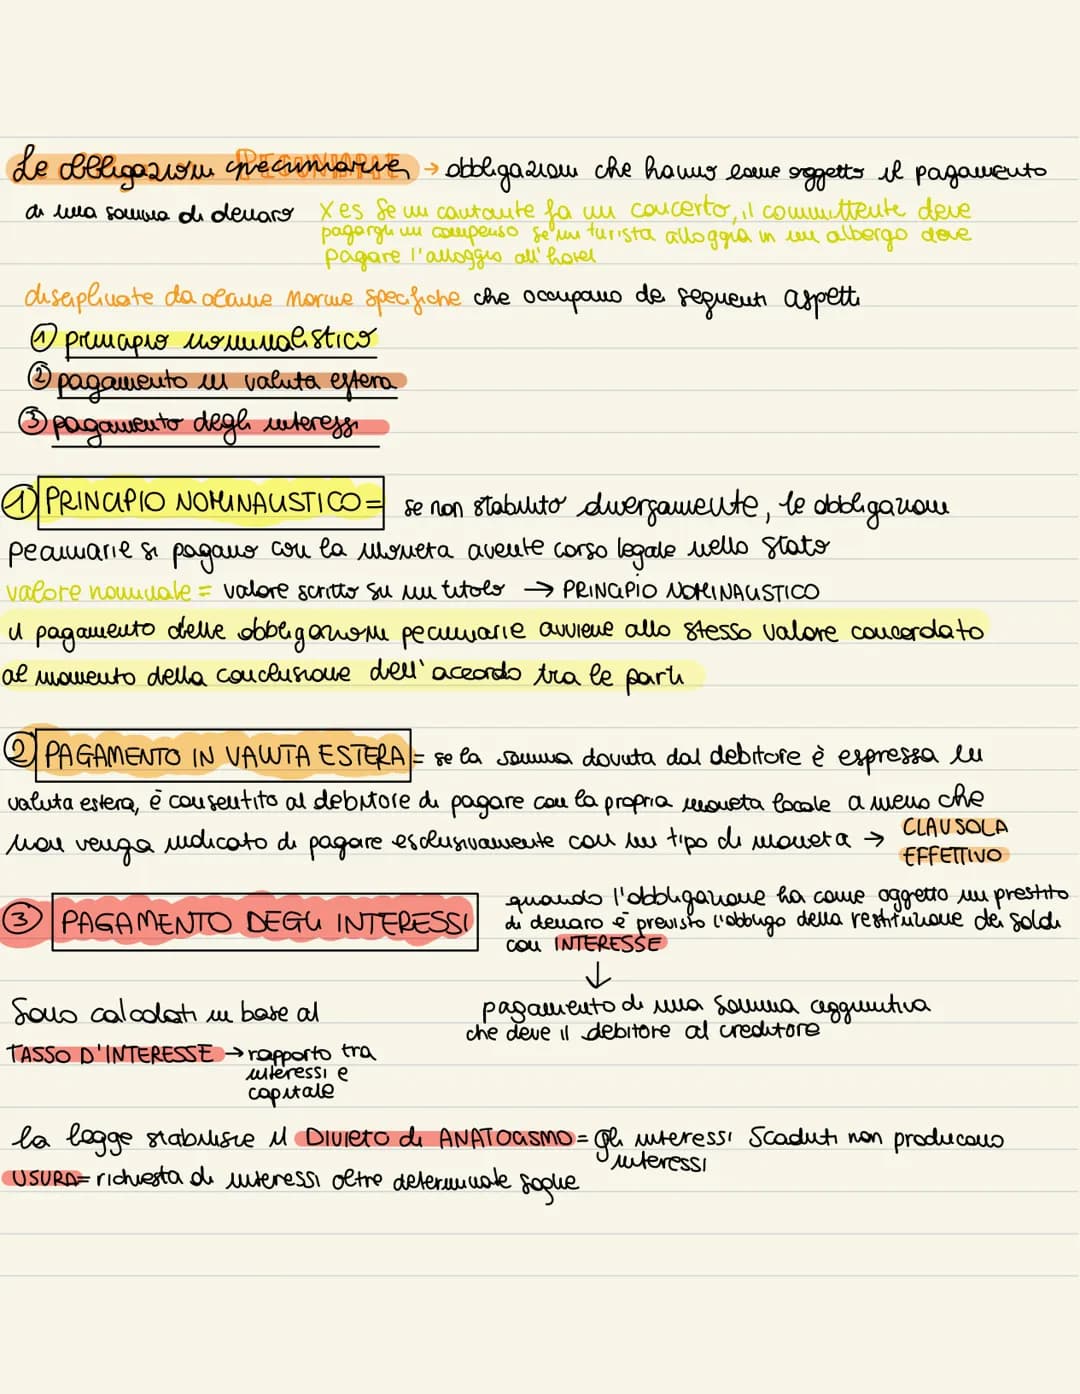 Le obbligazioni pecuniarie → obbligazioni che hanno come oggetto il pagamento
di una somma di denaro
x es se un cantante fa un concerto, il committente deve
pagargli un compenso se un turista alloggia in un albergo deve
pagare l'alloggio all'hotel
disciplinate da alcune norme specifiche che occupano dei seguenti aspetti
① principio nominalistico
② pagamento in valuta estera
③ pagamento degli interessi
① PRINCIPIO NOMINALISTICO = se non stabilito diversamente, le obbligazioni
pecuniarie si pagano con la moneta avente corso legale nello stato
valore nominale = valore scritto su un titolo → PRINCIPIO NOMINALISTICO
il pagamento delle obbligazioni pecuniarie avviene allo stesso valore concordato
al momento della conclusione dell'accordo tra le parti
② PAGAMENTO IN VALUTA ESTERA = se la somma dovuta dal debitore è espressa in
valuta estera, è consentito al debitore di pagare con la propria moneta locale a meno che
non venga indicato di pagare esclusivamente con un tipo di moneta → CLAUSOLA
EFFETTIVO
③ PAGAMENTO DEGLI INTERESSI
quando l'obbligazione ha come oggetto un prestito
di denaro è previsto l'obbligo della restituzione dei soldi
con INTERESSE
↓
pagamento di una somma aggiuntiva
che deve il debitore al creditore
Sono calcolati in base al
TASSO D'INTERESSE → rapporto tra
interessi e
capitale
la legge stabilisce il DIVIETO di ANATOCISMO = gli interessi scaduti non producono
interessi
USURA = richiesta di interessi oltre determinate soglie